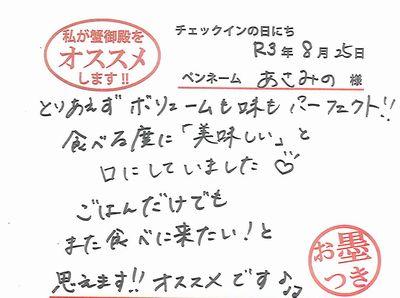 私が蟹御殿を
オススメ
します!!
チェックインの日にち
R3年 8月 25日
ペンネーム あさみの 様
とりあえず ボリュームも味も パーフェクト!!
食べる度に「美味しい」と
口にしていました♡
ごはんだけでも
また食べに来たい!と
思えます!! オススメです♪♪
お墨
つき